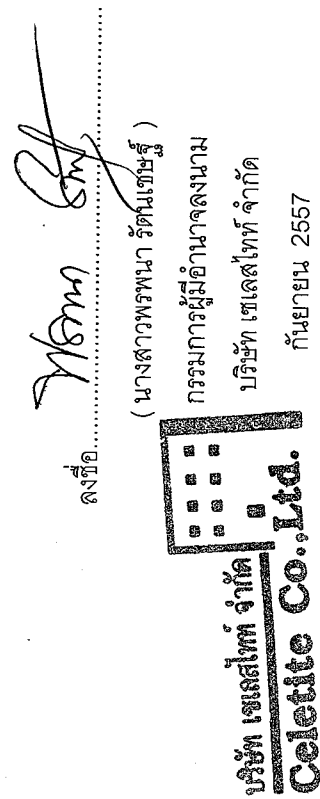 ลงชื่อ
( นางสาวพรพนา รัตนเชษฐ์ )
กรรมการผู้มีอำนาจลงนาม
บริษัท เซเลสไทท์ จำกัด
กันยายน 2557
บริษัท เซเลสไทท์ จำกัด
Celetite Co.,Ltd.